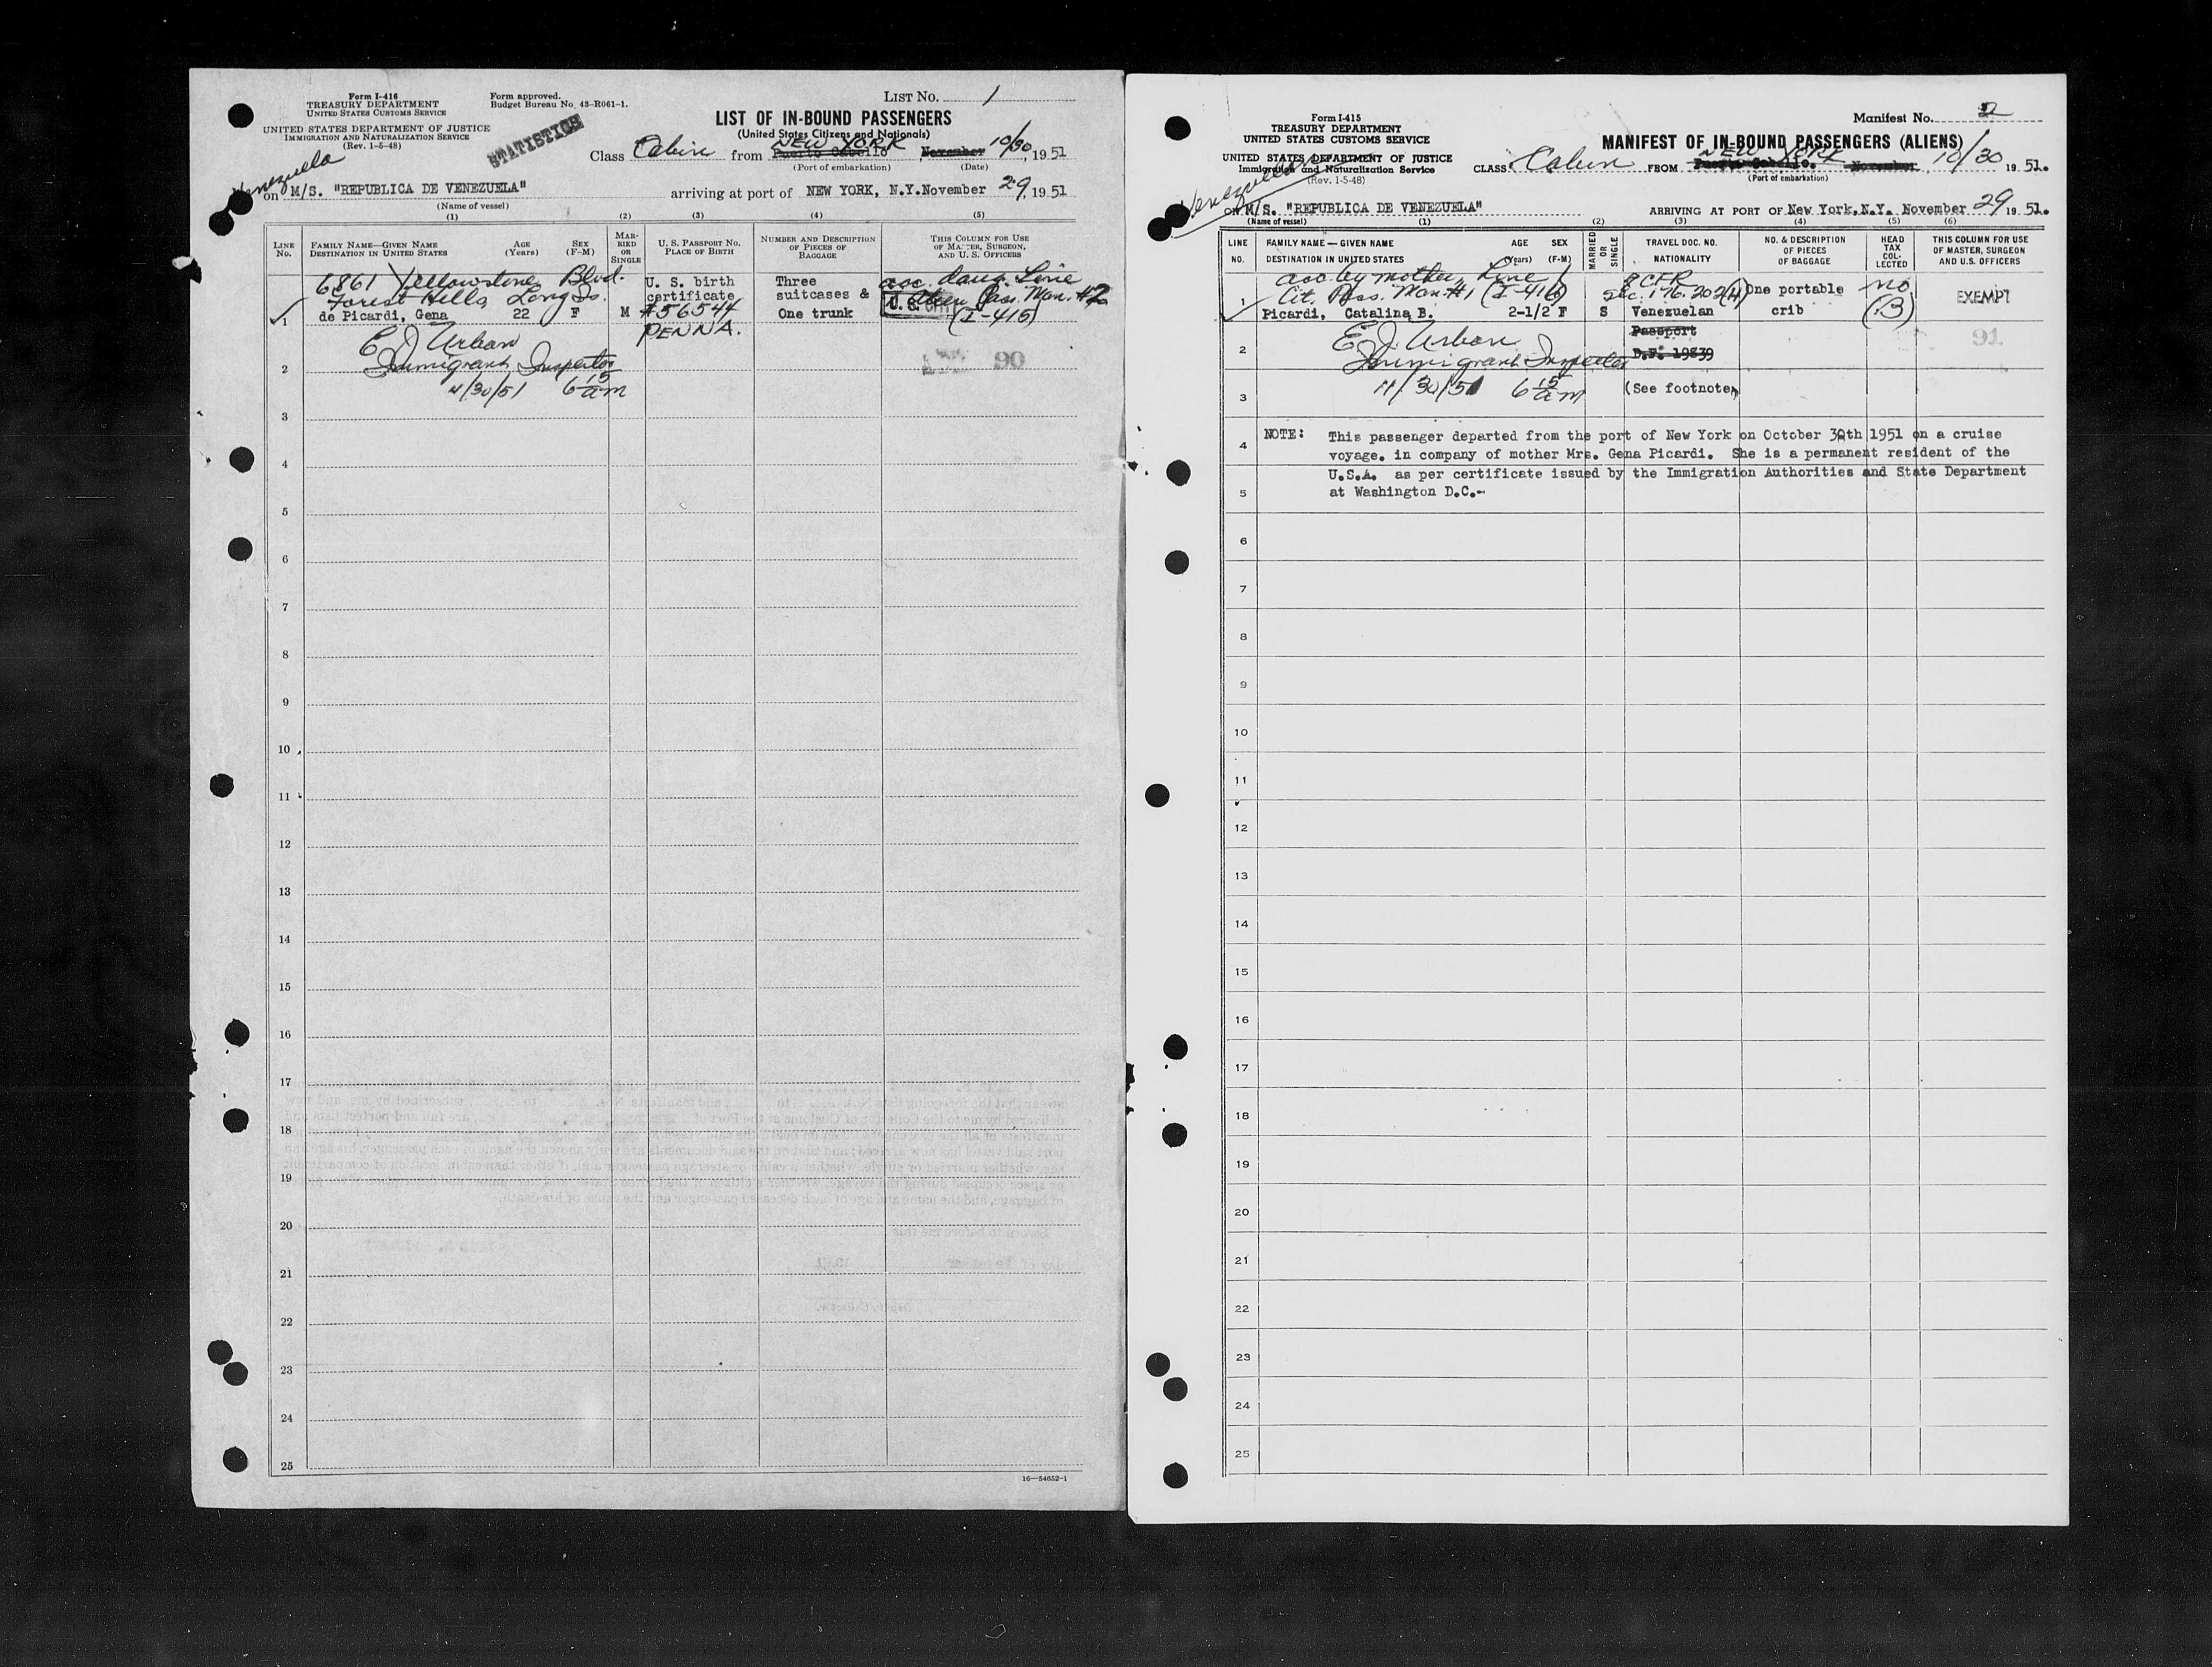 Form I-416
TREASURY DEPARTMENT
UNITED STATES CUSTOMS SERVICE
UNITED STATES DEPARTMENT OF JUSTICE
IMMIGRATION AND NATURALIZATION SERVICE
(Rev. 1-5-48)
Form approved.
Budget Bureau No. 43-R061-1.
STATISTICS
LIST NO. 1
LIST OF IN-BOUND PASSENGERS
(United States Citizens and Nationals)
Venezuela
Class Cabin from NEW YORK Puerto Cabello, November 10/30, 1951
(Port of embarkation) (Date)
on M/S. "REPUBLICA DE VENEZUELA" arriving at port of NEW YORK, N.Y. November 29, 1951
(Name of vessel)
(1) (2) (3) (4) (5)
LINE No. FAMILY NAME—GIVEN NAME DESTINATION IN UNITED STATES AGE (Years) SEX (F-M) MARRIED OR SINGLE U. S. PASSPORT NO. PLACE OF BIRTH NUMBER AND DESCRIPTION OF PIECES OF BAGGAGE THIS COLUMN FOR USE OF MASTER, SURGEON, AND U. S. OFFICERS
6861 Yellowstone Blvd. U. S. birth Three acc. daug. Line
Forest Hills, Long Is. certificate suitcases & Alien Pass. Man. #2
1 de Picardi, Gena 22 F M #56544 One trunk (I-415)
PENNA.
E J Urban
2 Immigrant Inspector 90
11/30/51 6 15 am
3
4
5
6
7
8
9
10
11
12
13
14
15
16
17
18
19
20
21
22
23
24
25
16—54652-1
Form I-415
TREASURY DEPARTMENT
UNITED STATES CUSTOMS SERVICE
UNITED STATES DEPARTMENT OF JUSTICE
Immigration and Naturalization Service
(Rev. 1-5-48)
Manifest No. 2
MANIFEST OF IN-BOUND PASSENGERS (ALIENS)
Venezuela
CLASS Cabin FROM NEW YORK Puerto Cabello. November 10/30 1951.
(Port of embarkation)
ON M/S. "REPUBLICA DE VENEZUELA" ARRIVING AT PORT OF New York, N.Y. November 29 1951.
(Name of vessel) (1) (2) (3) (4) (5) (6)
LINE NO. FAMILY NAME — GIVEN NAME DESTINATION IN UNITED STATES AGE (Years) SEX (F-M) MARRIED OR SINGLE TRAVEL DOC. NO. NATIONALITY NO. & DESCRIPTION OF PIECES OF BAGGAGE HEAD TAX COLLECTED THIS COLUMN FOR USE OF MASTER, SURGEON AND U.S. OFFICERS
acc by mother, Line 1 8 CFR
1 Cit. Pass. Man. #1 (I-416) Sec. 176.202(H) One portable no EXEMPT
Picardi, Catalina B. 2-1/2 F S Venezuelan crib (B)
E J Urban Passport 91
2 Immigrant Inspector D.F. 19839
3 11/30/51 6 15 am (See footnote)
4 NOTE: This passenger departed from the port of New York on October 30th 1951 on a cruise
voyage. in company of mother Mrs. Gena Picardi. She is a permanent resident of the
U.S.A. as per certificate issued by the Immigration Authorities and State Department
5 at Washington D.C.-
6
7
8
9
10
11
12
13
14
15
16
17
18
19
20
21
22
23
24
25